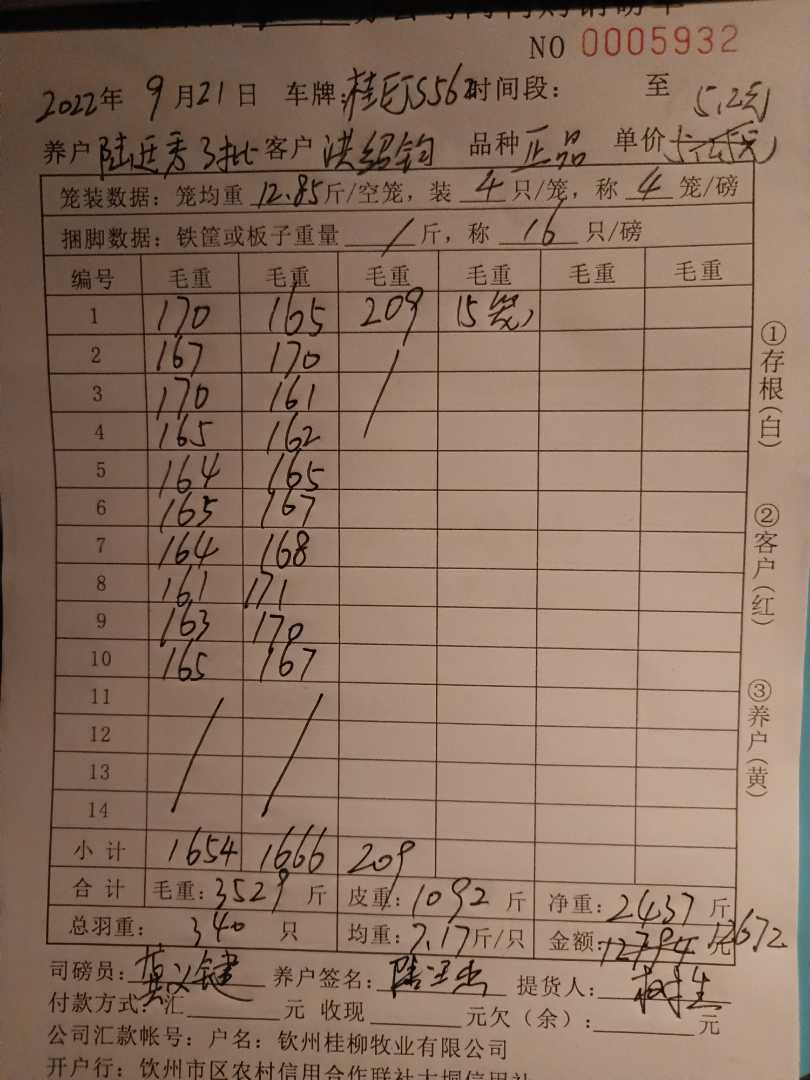 NO 0005932
2022年 9月21日 车牌: 时间段: 至 5.2元
养户 3批 客户 洪绍钧 品种 正品 单价
笼装数据: 笼均重 12.85 斤/空笼, 装 4 只/笼, 称 4 笼/磅
捆脚数据: 铁筐或板子重量 / 斤, 称 16 只/磅
编号 毛重 毛重 毛重 毛重 毛重 毛重
1 170 165 209 (5笼)
2 167 170 /
3 170 161
4 165 162
5 164 165
6 165 167
7 164 168
8 161 171
9 163 170
10 165 167
11
12 / /
13
14
小计 1654 1666 209
合计 毛重: 3529 斤 皮重: 1092 斤 净重: 2437 斤
总羽重: 340 只 均重: 7.17 斤/只 金额: 12794 元 12672
司磅员: 养户签名: 提货人:
付款方式: 汇 元 收现 元欠(余): 元
公司汇款帐号: 户名: 钦州桂柳牧业有限公司
开户行: 钦州市区农村信用合作联社大垌信用社
①存根(白)
②客户(红)
③养户(黄)